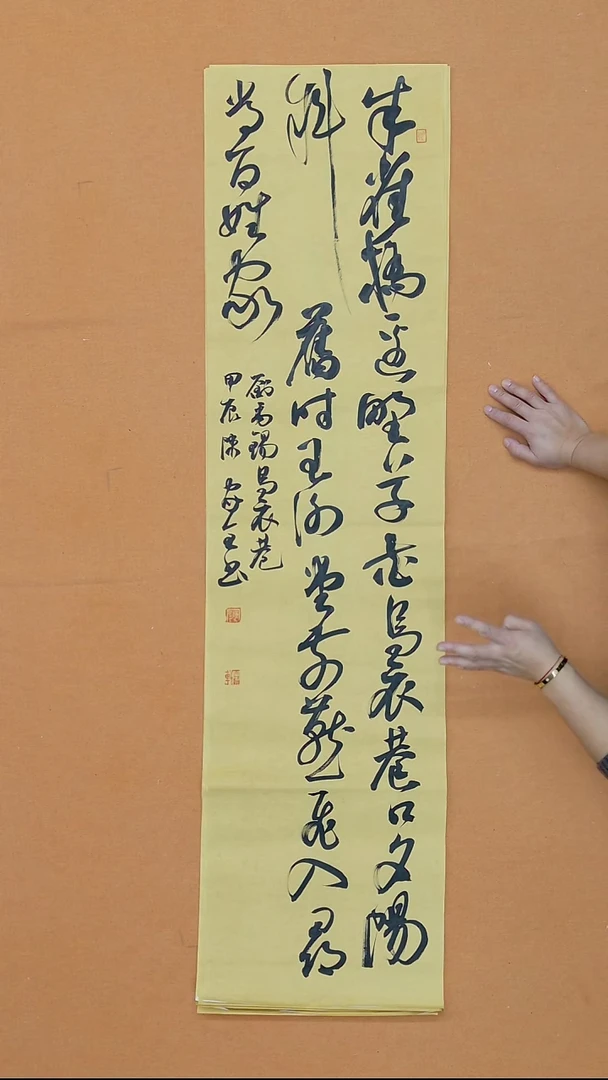 朱雀橋邊野草花烏衣巷口夕陽
斜舊時王謝堂前燕飛入尋
常百姓家
劉禹錫烏衣巷
甲辰